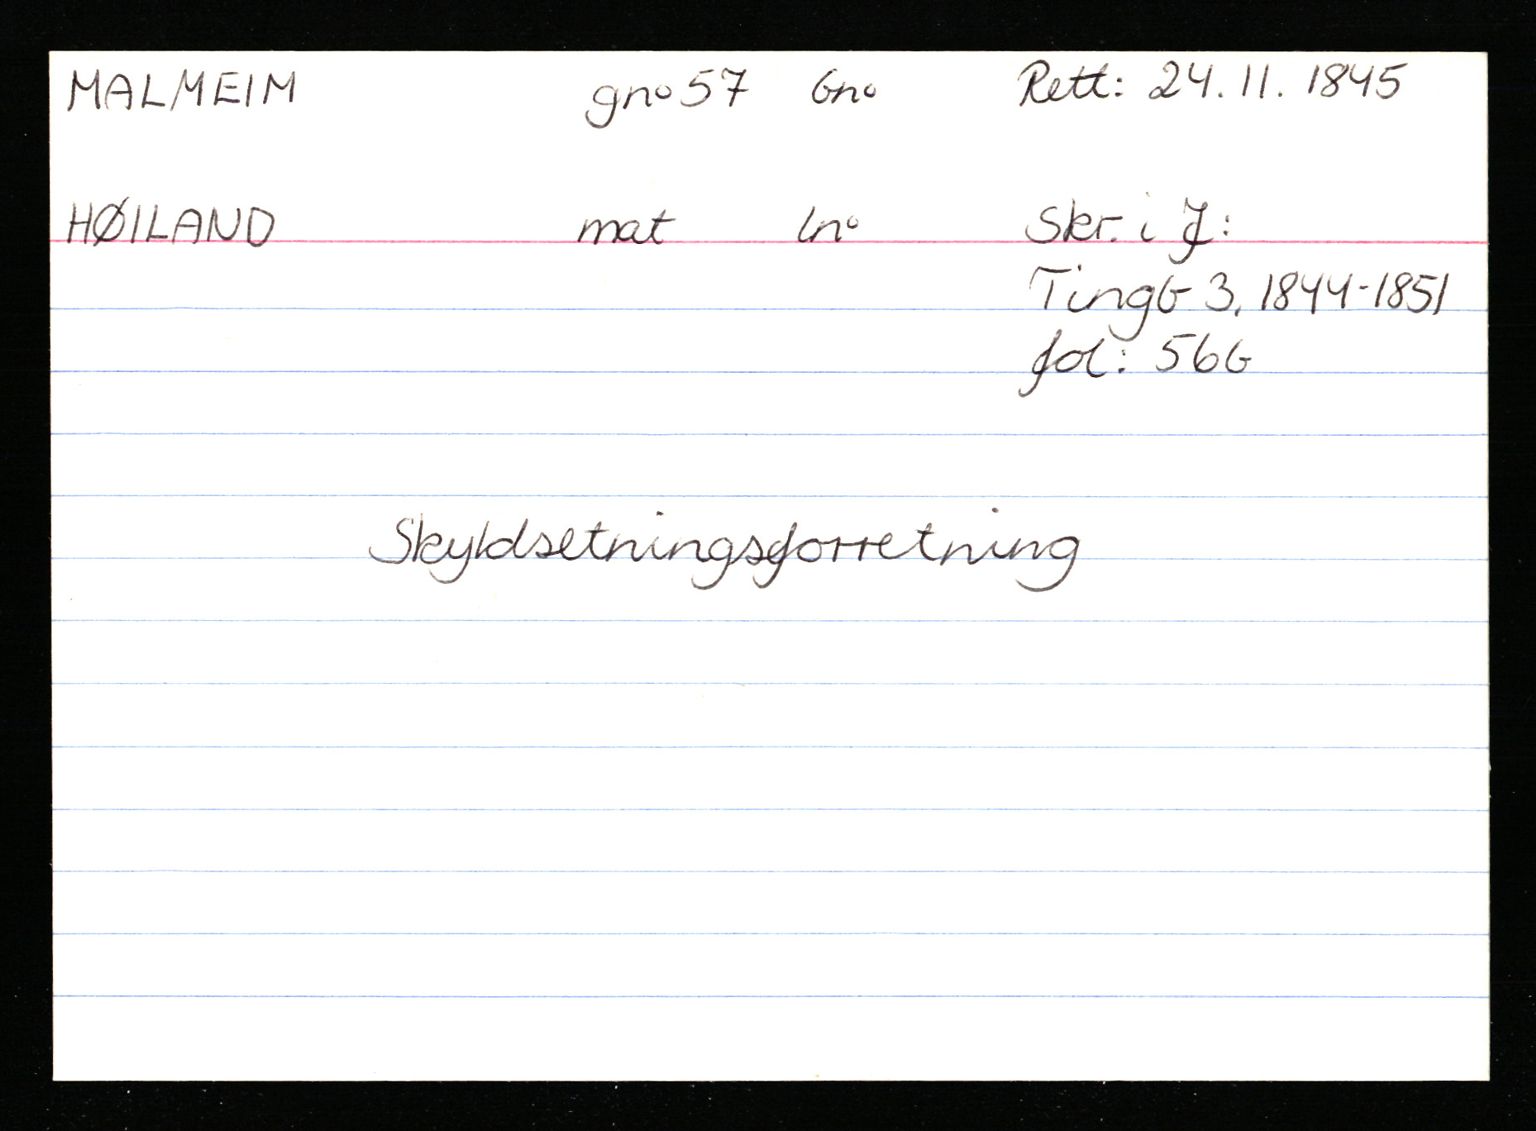 MALMEIM gno 57 bno Rett: 24.11.1845
HØILAND mat lno Skr. i J:
Tingb 3, 1844-1851
fol: 56b
Skyldsetningsforretning